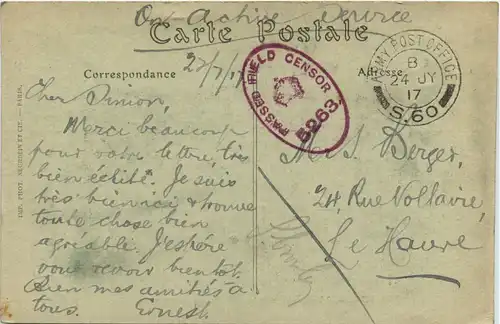 On Active Service
Carte Postale
Correspondance
Adresse
22/7/17
PASSED FIELD CENSOR
5263
ARMY POST OFFICE
B
24 JY
17
S.60
Cher
Merci beaucoup
pour votre lettre, très
bien écrite. Je suis
très bien ici & trouve
toute chose bien
agréable. J'espère
vous revoir bientôt.
Bien mes amitiés à
tous. Ernest
Berger,
24, Rue Voltaire,
Le Havre
IMP. PHOT. PARIS.